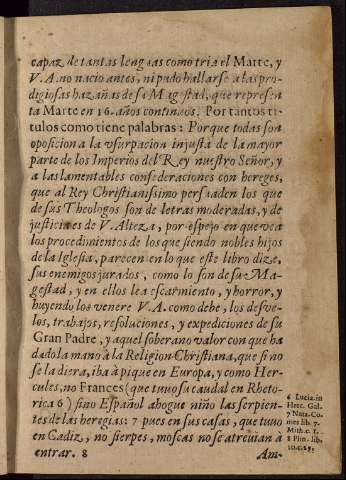 capaz de tantas lenguas como tria el Marte, y
V.A. no nacio antes, ni pudo hallarse a las pro-
digiosas hazañas de su Magestad, que represen
ta Marte en 16. años continuos. Por tantos ti
tulos como tiene palabras: Porque todas son
oposicion a la vsurpacion injusta de la mayor
parte de los Imperios del Rey nuestro Señor, y
a las lamentables confederaciones con hereges,
que al Rey Christianissimo persuaden los que
de sus Theologos son de letras moderadas, y de
justicia es de V. Alteza, por espejo en que vea
los procedimientos de los que siendo nobles hijos
de la Iglesia, parecen en lo que este libro dize,
sus enemigos jurados, como lo son de su Ma-
gestad, y en ellos lea escarmiento, y horror, y
huyendo los venere V.A. como debe, los desve-
los, trabajos, resoluciones, y expediciones de su
Gran Padre, y aquel soberano valor con que ha
dado la mano à la Religion Christiana, que si no
se la diera, iba à pique en Europa, y como Her-
cules, no Frances (que tuuo su caudal en Rheto-
rica 6) sino Español ahogue niño las serpien-
tes de las heregias: 7 pues en sus casas, que tuuo
en Cadiz, no sierpes, moscas no se atreuian à
entrar. 8
6 Lucia. in
Herc. Gal.
7 Nata. Co-
mes lib. 7.
Mith. c. 1.
8 Plin. lib.
10. c. 29.
Am-